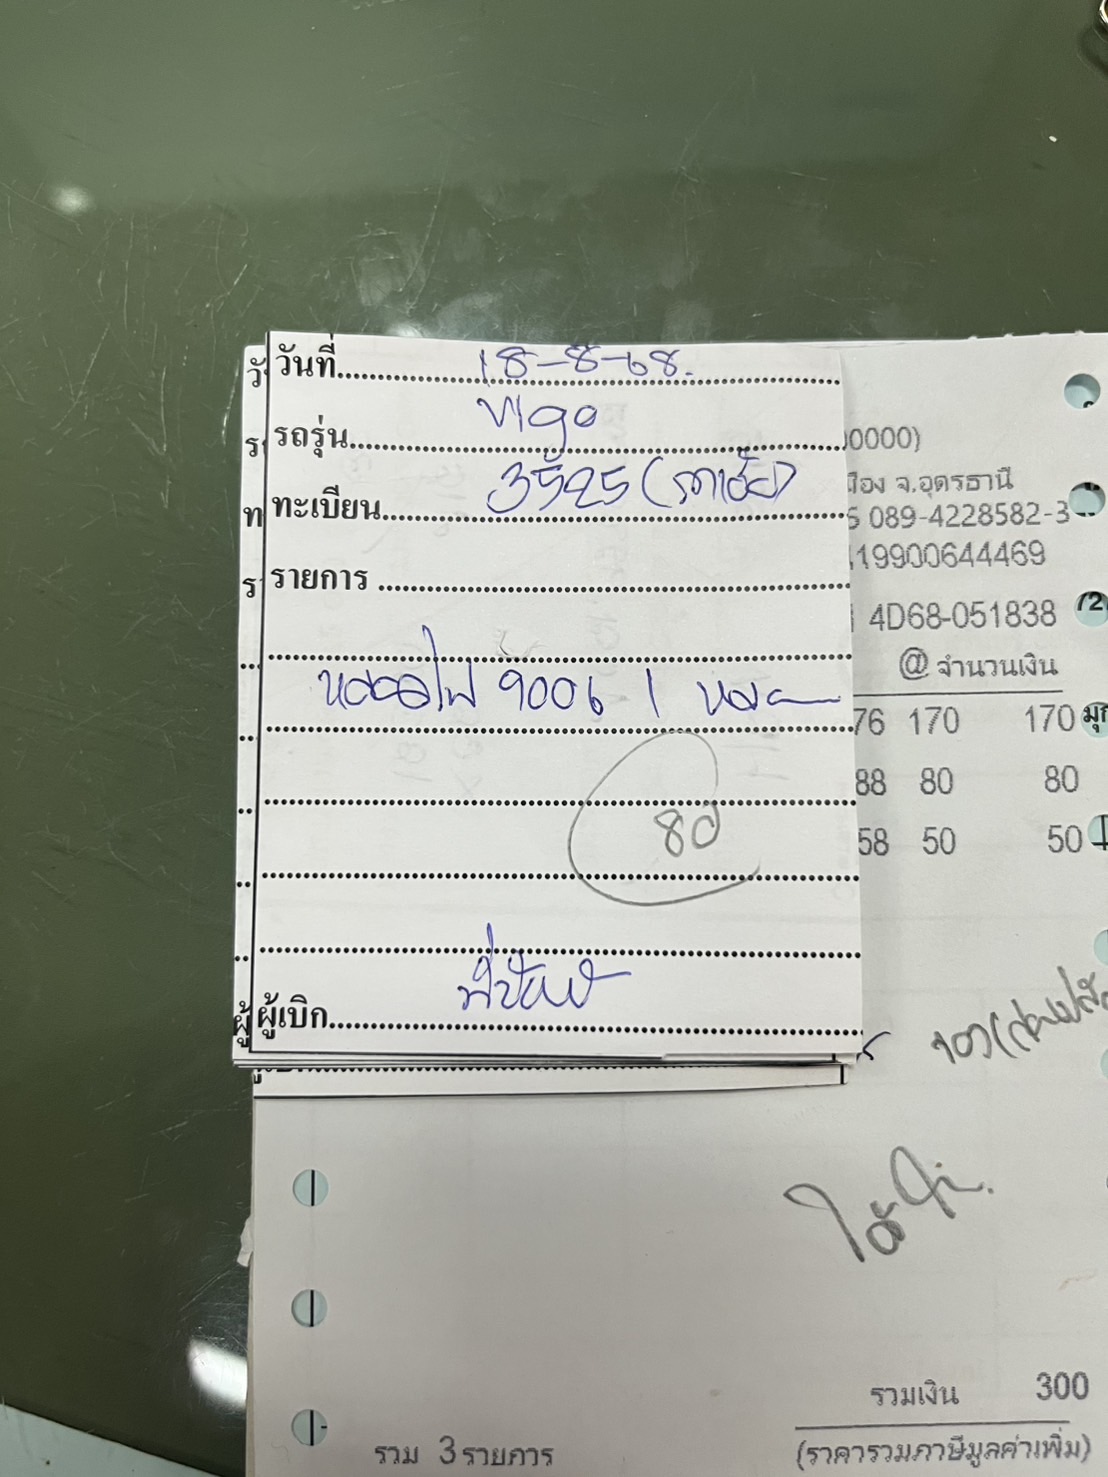 วันที่ 18-8-68.
รถรุ่น Vigo
ทะเบียน 3525 (
รายการ
หลอดไฟ 9006 1 หลอด
80
ผู้เบิก
0000)
จ.อุดรธานี
089-4228582-3
19900644469
4D68-051838
72
@ จำนวนเงิน
76 170 170
88 80 80
58 50 50
รวมเงิน 300
รวม 3 รายการ
(ราคารวมภาษีมูลค่าเพิ่ม)